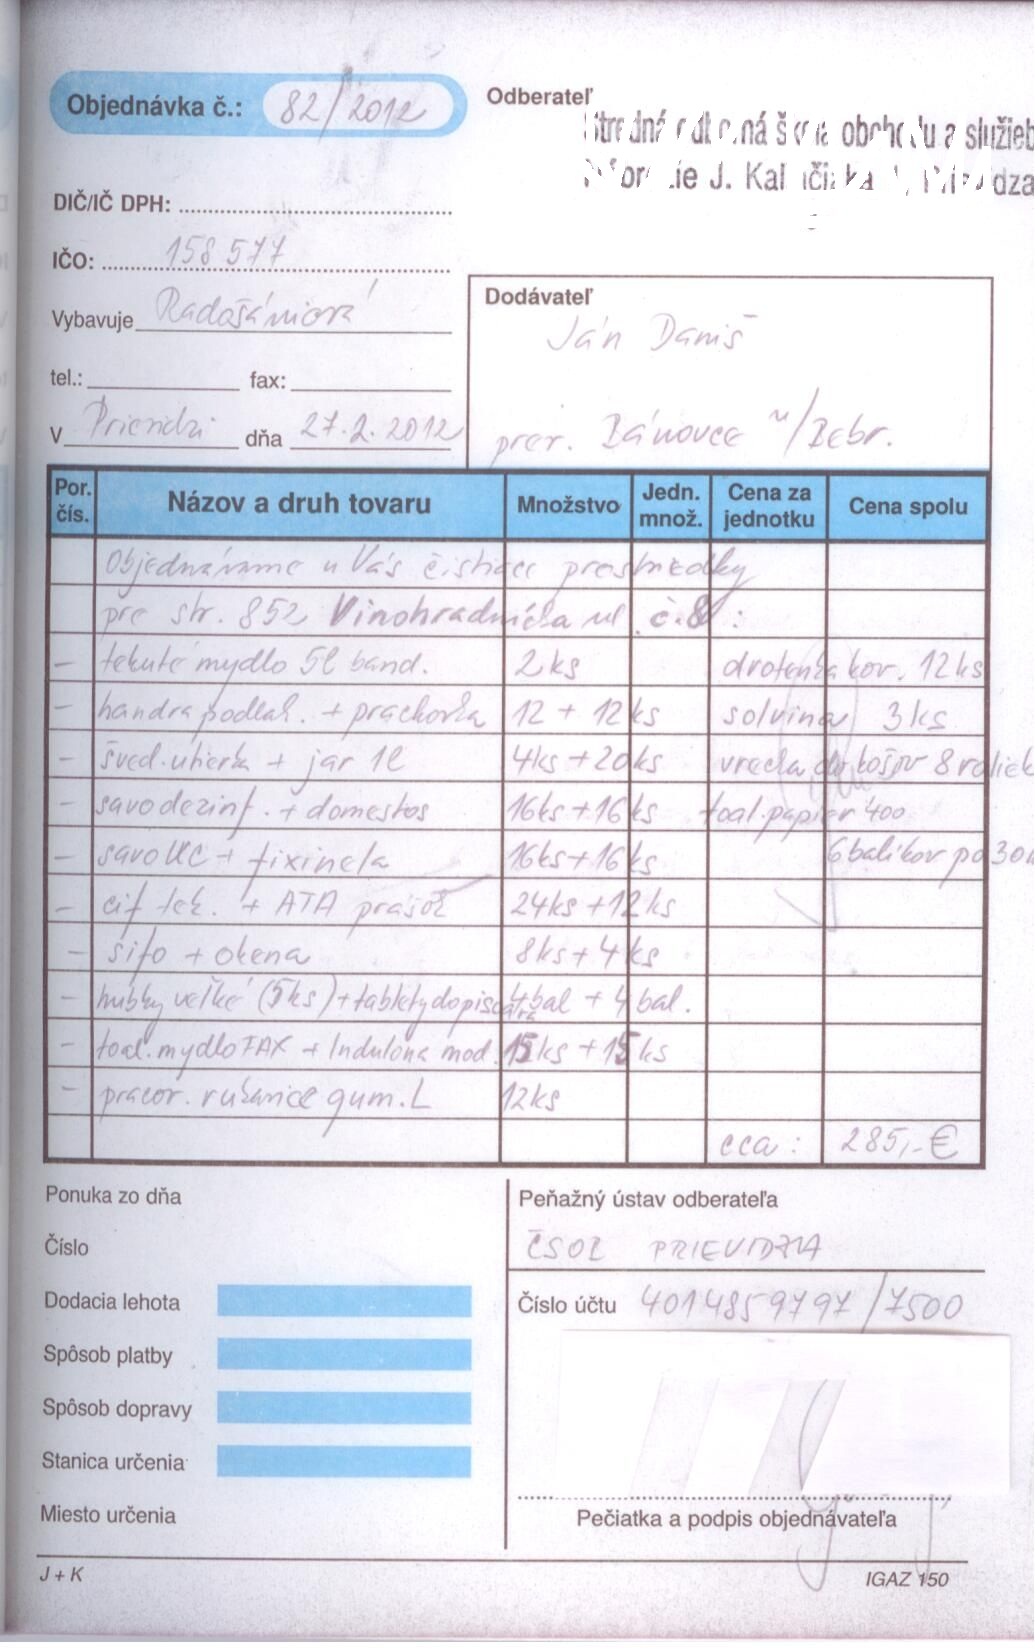 Objednávka č.: 82/2012
Odberateľ
Stredná odborná škola obchodu a služieb
J. Kalinčiaka
DIČ/IČ DPH:
IČO: 158 577
Vybavuje Radošániová
tel.: fax:
V Prievidzi dňa 27.2.2012
Dodávateľ
Ján Daniš
prev. Bánovce n/Bebr.
Por. čís. Názov a druh tovaru Množstvo Jedn. množ. Cena za jednotku Cena spolu
Objednávame u Vás čistiace prostriedky
pre str. 852 Vinohradnícka ul. č.8 :
– tekuté mydlo 5l band. 2ks drotenka kov. 12ks
– handra podlah. + prachovka 12 + 12ks solvina 3ks
– šved. utierka + jar 1l 4ks + 20ks vrecia do košov 8 roliek
– savo dezinf. + domestos 16ks + 16ks toal. papier 400
– savo WC + fixinela 16ks + 16ks 6 balíkov po 30
– cif tek. + ATA prášok 24ks + 12ks
– sifo + okena 8ks + 4ks
– hubky veľké (5ks) + tablety do pisoára 4bal + 4bal.
– toal. mydlo FAX + Indulona mod. 15ks + 15ks
– pracov. rukavice gum. L 12ks
cca : 285,-€
Ponuka zo dňa
Číslo
Dodacia lehota
Spôsob platby
Spôsob dopravy
Stanica určenia
Miesto určenia
Peňažný ústav odberateľa
ČSOB PRIEVIDZA
Číslo účtu 4014859797/7500
Pečiatka a podpis objednávateľa
J + K
IGAZ 150